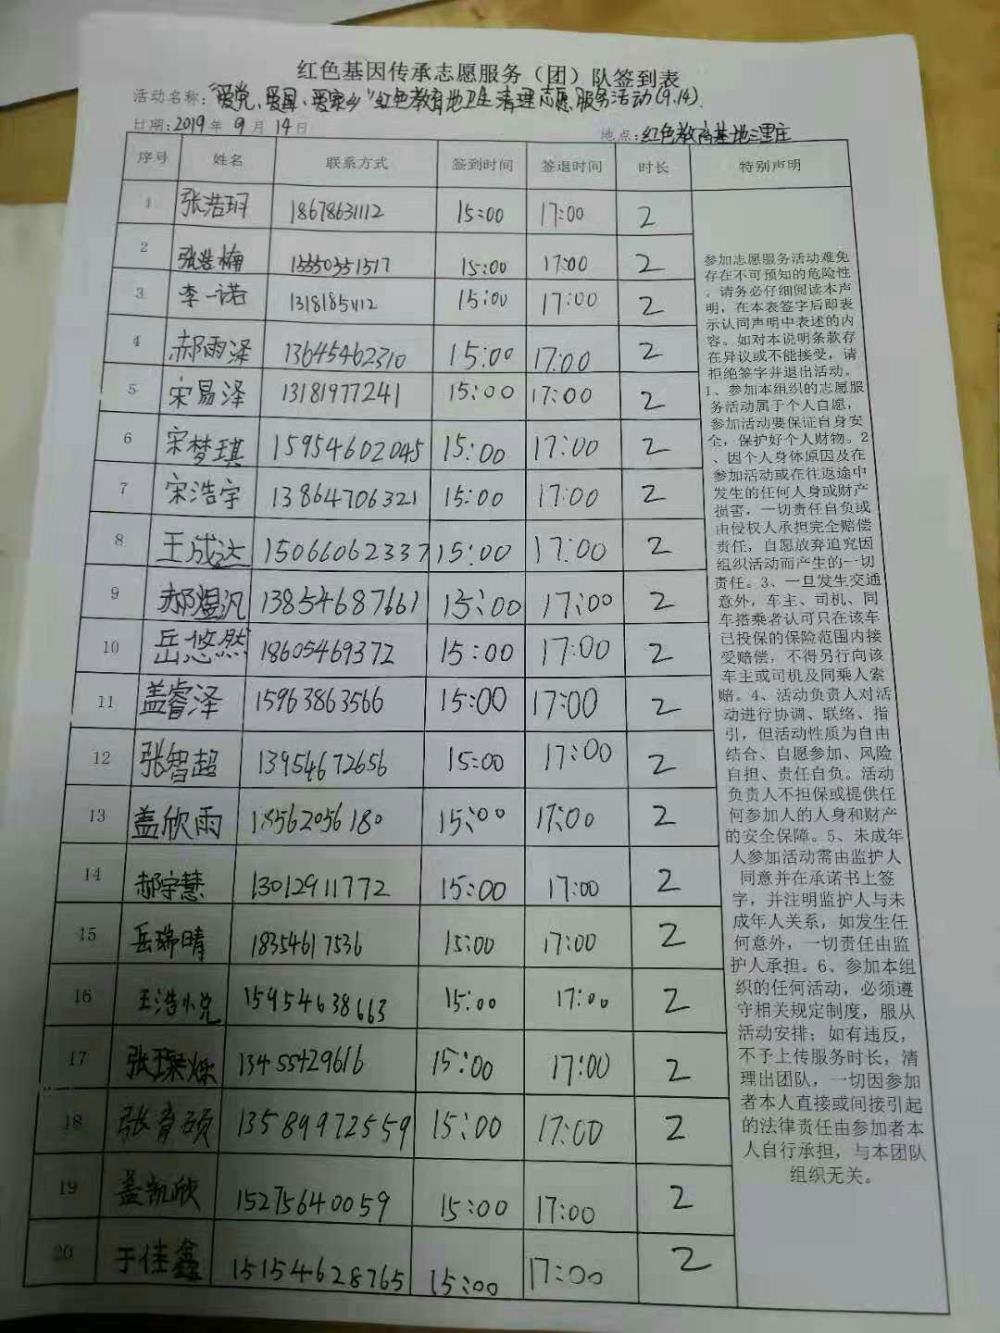 红色基因传承志愿服务（团）队签到表
活动名称：“爱党、爱国、爱家乡”红色教育基地卫生清理志愿服务活动(9.14)
日期：2019年9月14日 地点：红色教育基地三里庄
序号 姓名 联系方式 签到时间 签退时间 时长 特别声明
1 张浩玥 18678631112 15:00 17:00 2
2 张浩楠 13350351517 15:00 17:00 2
3 李一诺 1318185112 15:00 17:00 2
4 郝雨泽 13645462310 15:00 17:00 2
5 宋易泽 13181977241 15:00 17:00 2
6 宋梦琪 15954602045 15:00 17:00 2
7 宋浩宇 13864706321 15:00 17:00 2
8 王成达 15066062337 15:00 17:00 2
9 郝温汎 13854687661 15:00 17:00 2
10 岳悠然 18605469372 15:00 17:00 2
11 盖睿泽 15963863566 15:00 17:00 2
12 张智超 13954672656 15:00 17:00 2
13 盖欣雨 18562056180 15:00 17:00 2
14 郝宇慧 13012911772 15:00 17:00 2
15 岳瑞晴 18354617536 15:00 17:00 2
16 王浩悦 15954638663 15:00 17:00 2
17 张璨烁 13455429616 15:00 17:00 2
18 张育硕 13589972559 15:00 17:00 2
19 盖凯欣 15275640059 15:00 17:00 2
20 于佳鑫 15154628765 15:00 17:00 2
参加志愿服务活动难免
存在不可预知的危险性
，请务必仔细阅读本声
明，在本表签字后即表
示认同声明中表述的内
容。如对本说明条款存
在异议或不能接受，请
拒绝签字并退出活动。
1、参加本组织的志愿服
务活动属于个人自愿，
参加活动要保证自身安
全，保护好个人财物。2
、因个人身体原因及在
参加活动或在往返途中
发生的任何人身或财产
损害，一切责任自负或
由侵权人承担完全赔偿
责任，自愿放弃追究因
组织活动而产生的一切
责任。3、一旦发生交通
意外，车主、司机、同
车搭乘者认可只在该车
已投保的保险范围内接
受赔偿，不得另行向该
车主或司机及同乘人索
赔。4、活动负责人对活
动进行协调、联络、指
引，但活动性质为自由
结合、自愿参加、风险
自担、责任自负。活动
负责人不担保或提供任
何参加人的人身和财产
的安全保障。5、未成年
人参加活动需由监护人
同意并在承诺书上签
字，并注明监护人与未
成年人关系，如发生任
何意外，一切责任由监
护人承担。6、参加本组
织的任何活动，必须遵
守相关规定制度，服从
活动安排；如有违反，
不予上传服务时长，清
理出团队，一切因参加
者本人直接或间接引起
的法律责任由参加者本
人自行承担，与本团队
组织无关。